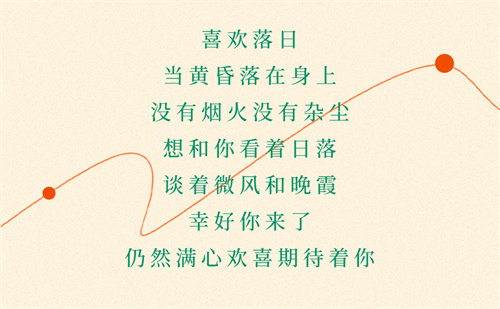 喜欢落日
当黄昏落在身上
没有烟火没有杂尘
想和你看着日落
谈着微风和晚霞
幸好你来了
仍然满心欢喜期待着你